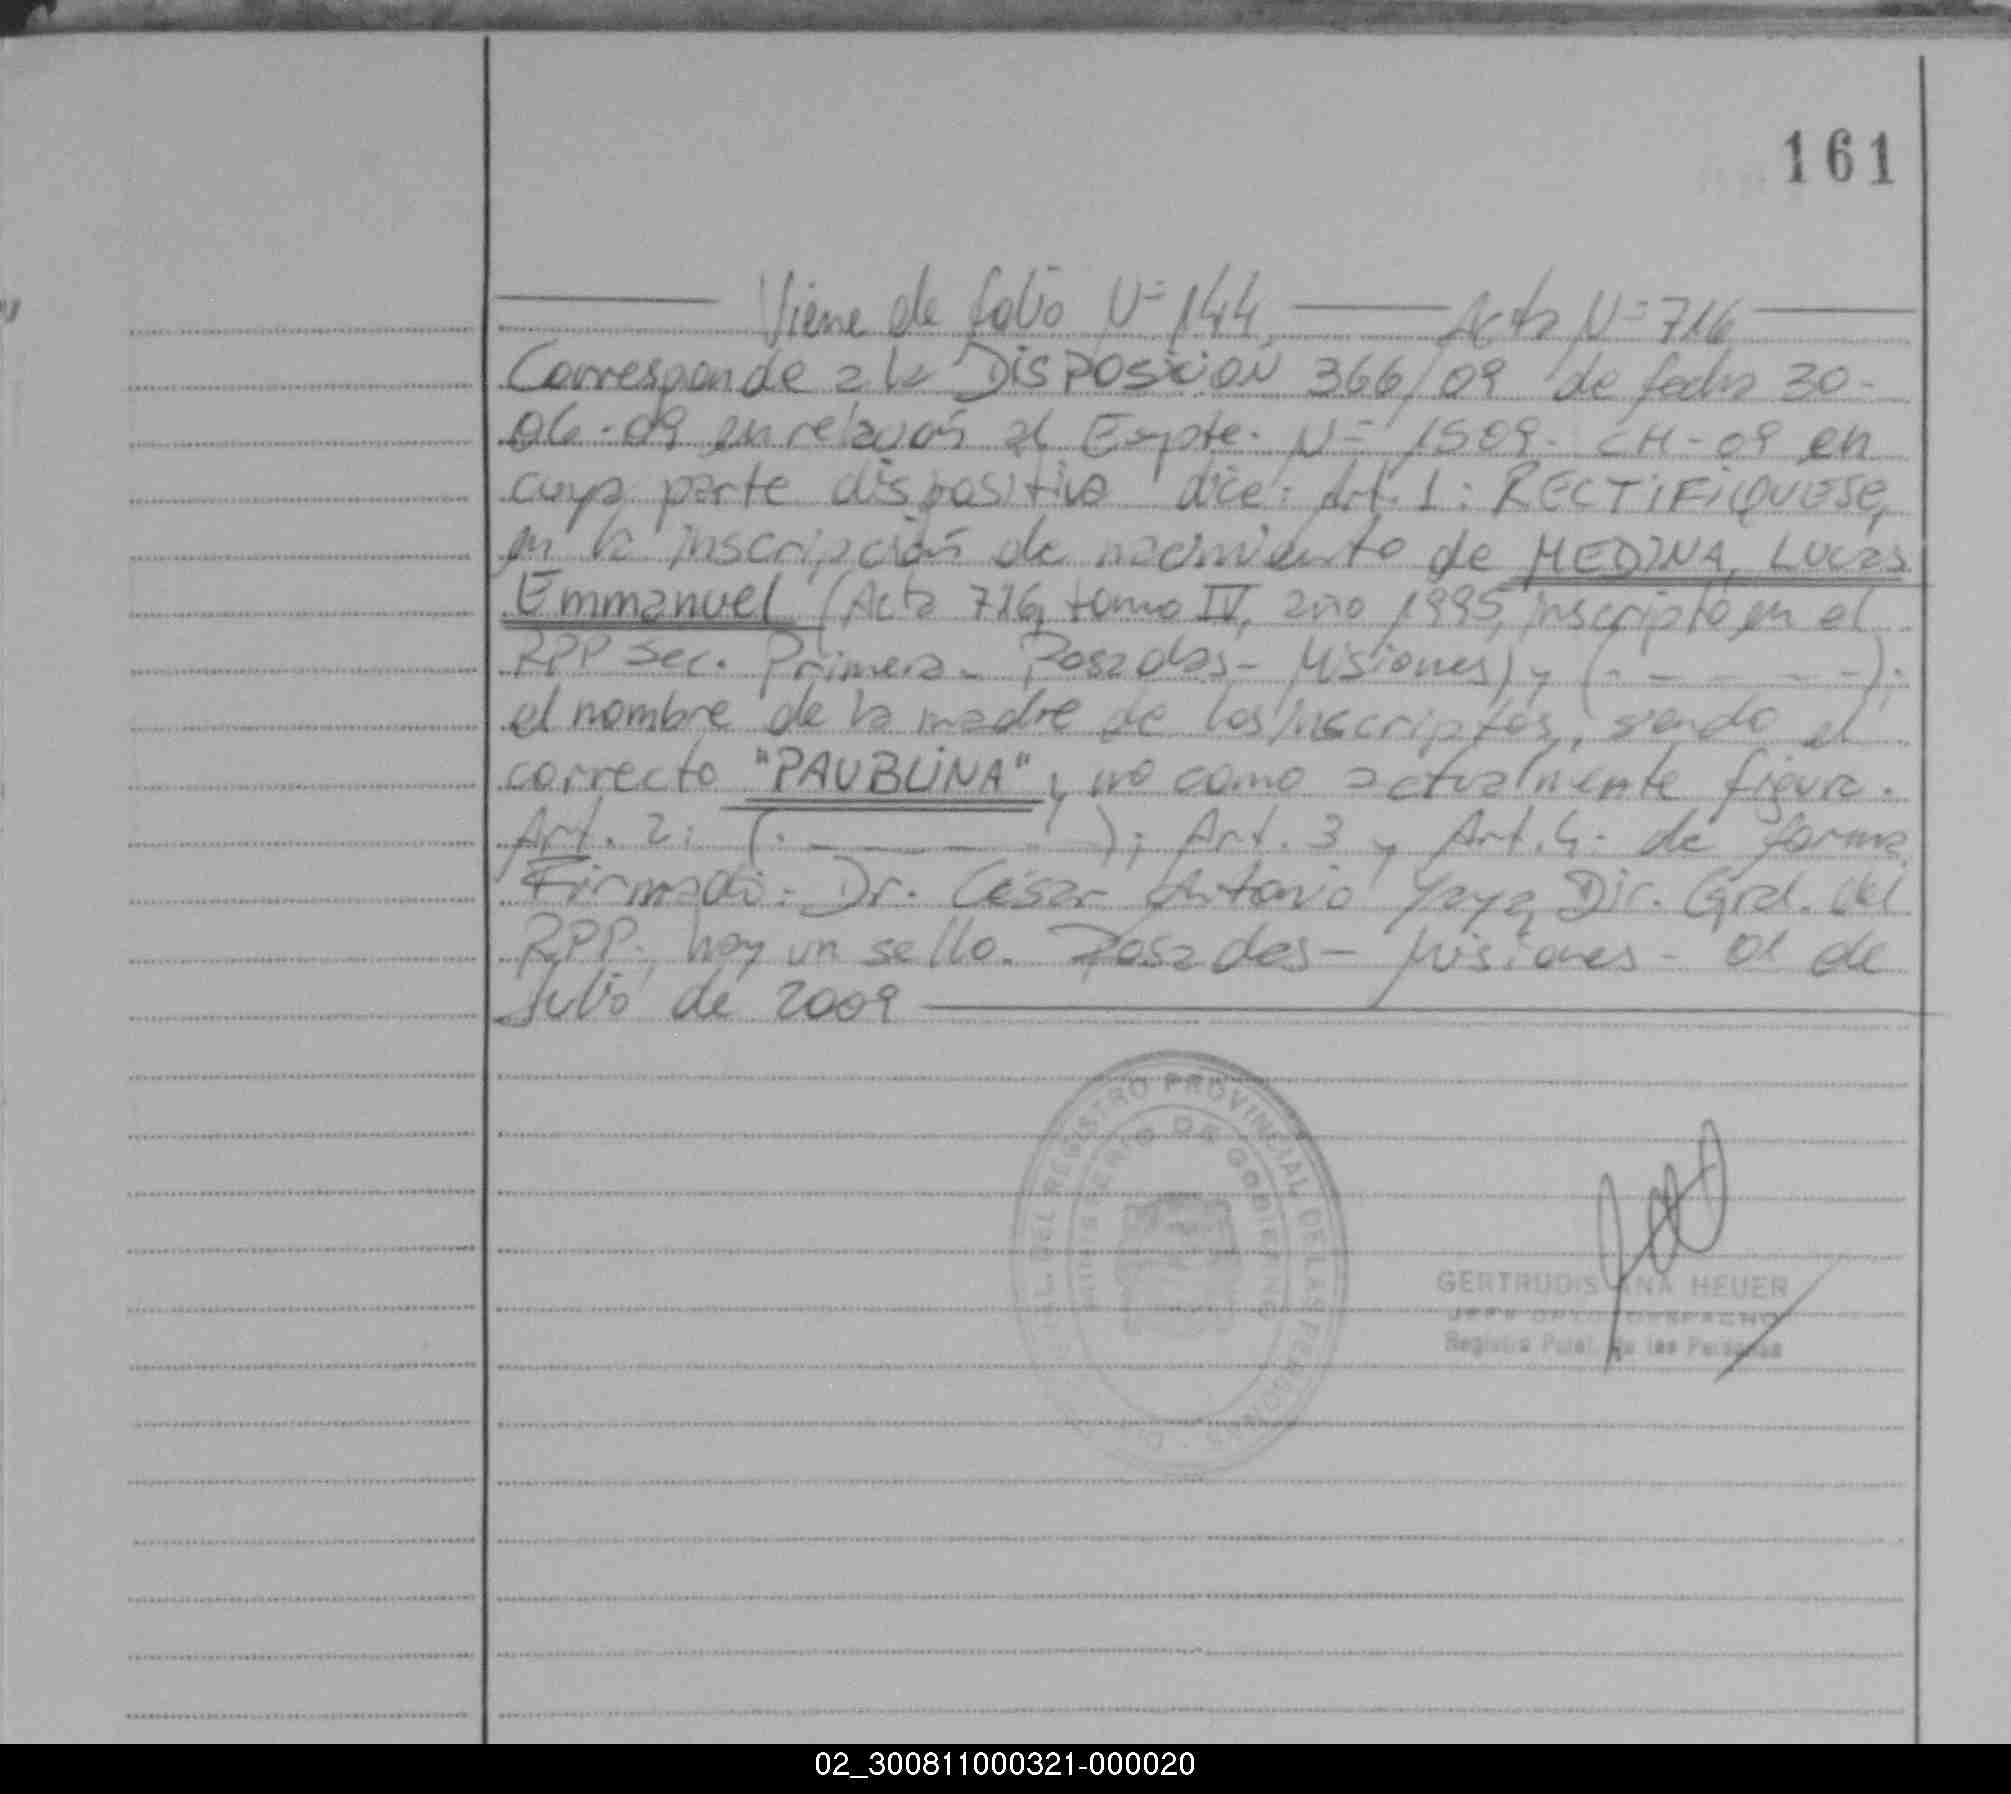 161
Viene de folio Nº 144. Acta Nº 716
Corresponde a la DISPOSICION 366/09 de fecha 30-
06-09 en relación al Expte. Nº 1509-CH-09 en
cuya parte dispositiva dice: Art. 1: RECTIFIQUESE,
en la inscripción de nacimiento de MEDINA, Lucas
Emmanuel (Acta 716, tomo IV, año 1995, inscripto en el
RPP Sec. Primera- Posadas- Misiones) y (- - - - -);
el nombre de la madre de los inscriptos, siendo el
correcto "PAUBLINA" y no como actualmente figura.
Art. 2: (- - - -); Art. 3 y Art. 4: de forma.
Firmado: Dr. César Antonio Yaya, Dir. Gral. del
RPP, hay un sello. Posadas- Misiones- 01 de
Julio de 2009
DEL REGISTRO PROVINCIAL DE LAS PERSONAS
MINISTERIO DE GOBIERNO
GERTRUDIS ANA HEUER
JEFE DPTO. DESPACHO
Registro Pcial. de las Personas
02_300811000321-000020